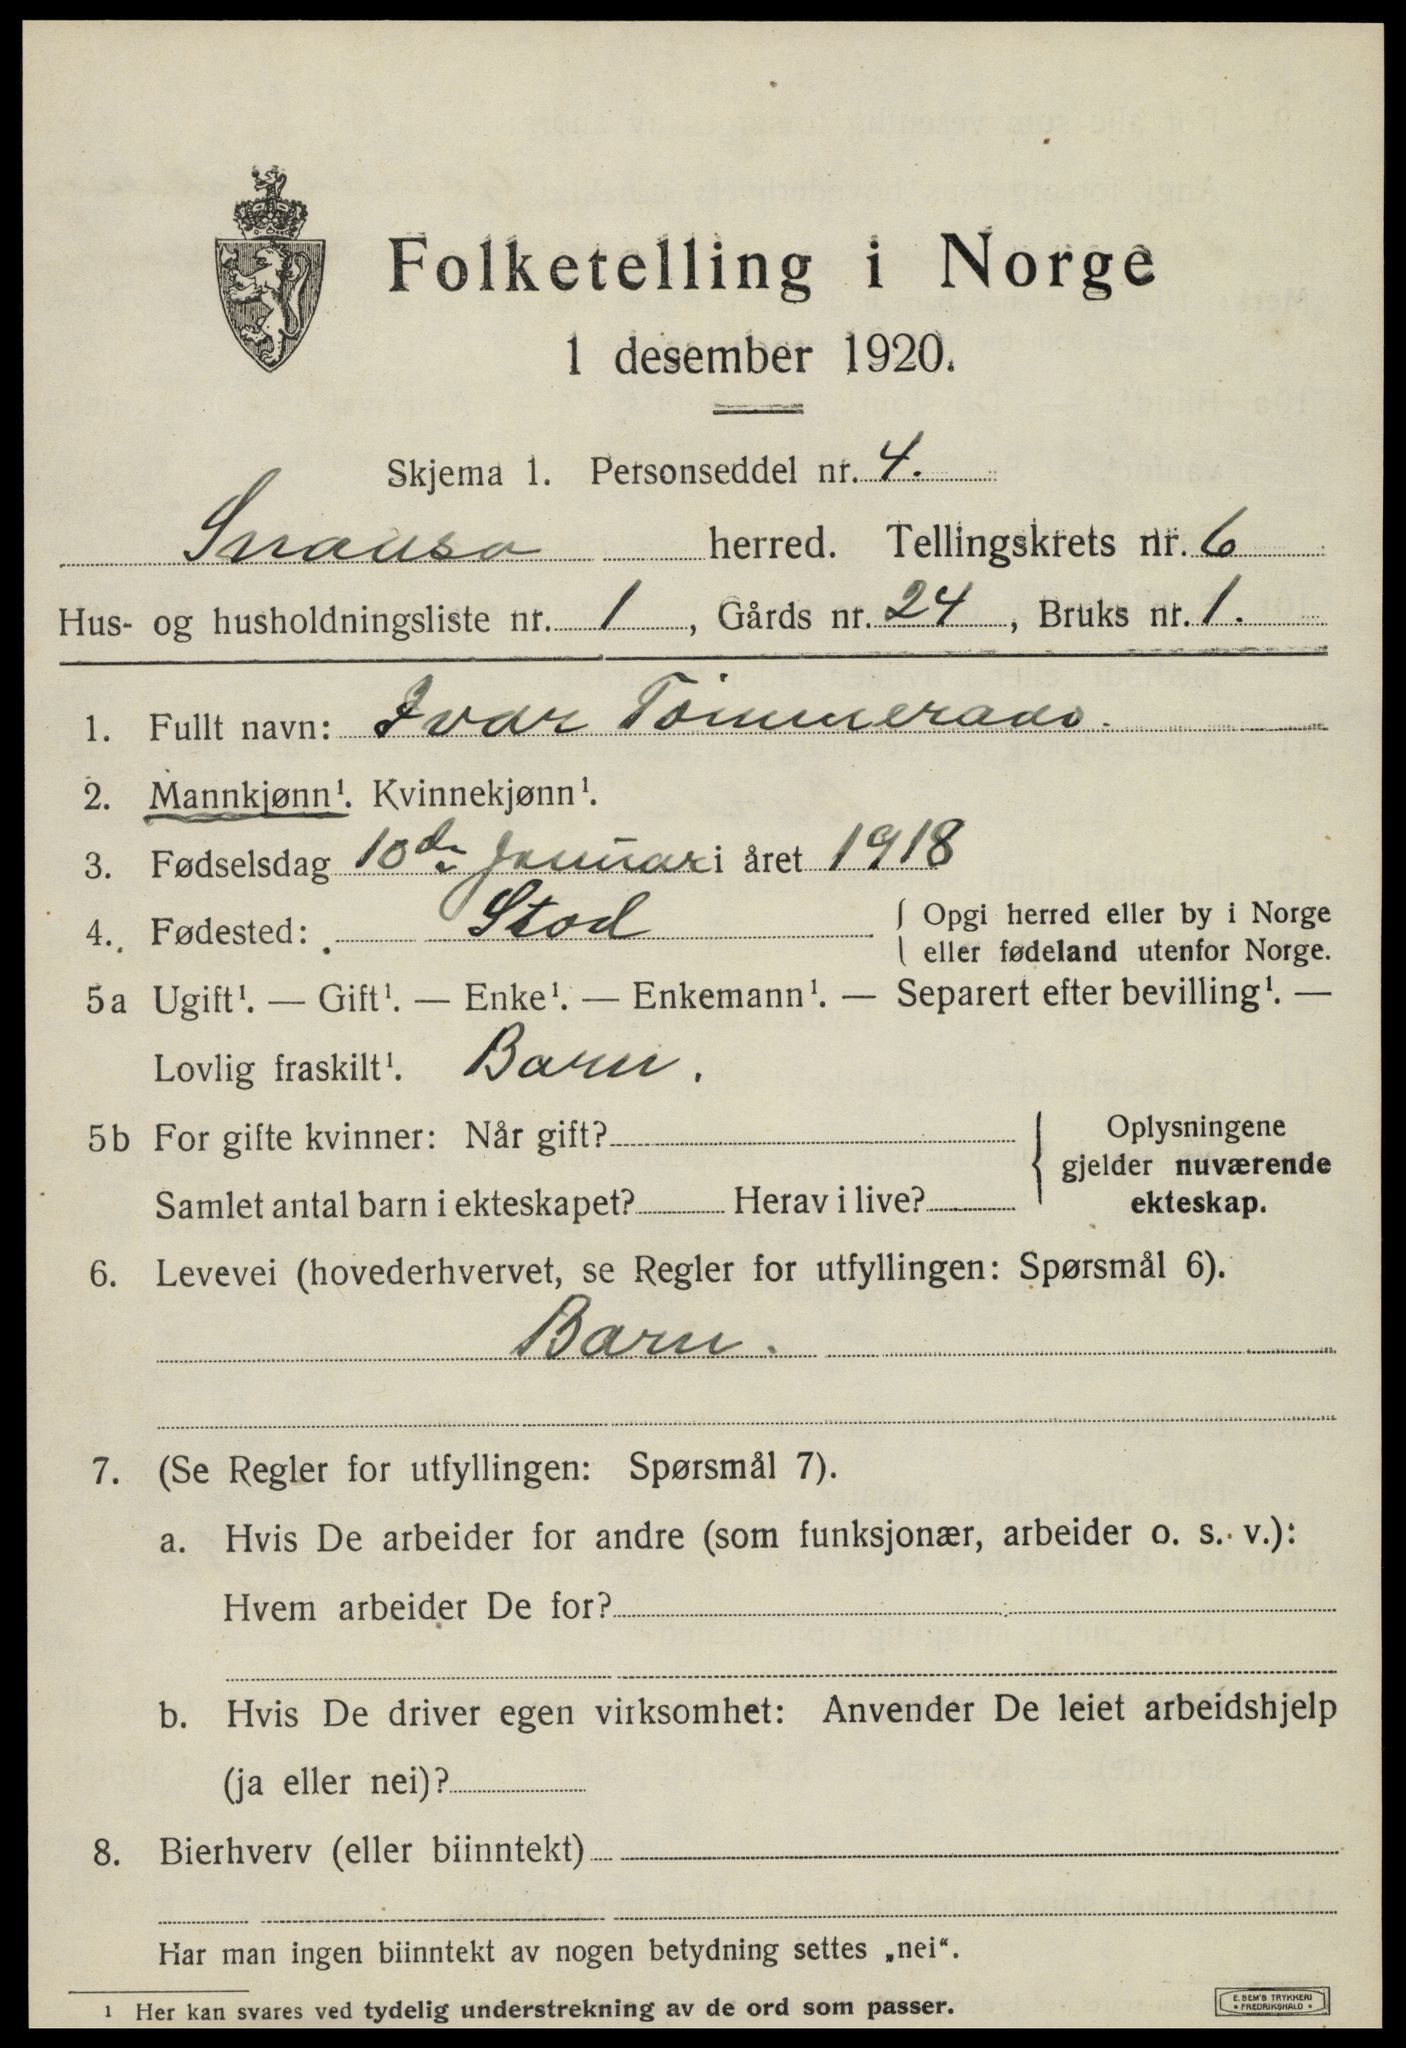 Folketelling i Norge
1 desember 1920.
Skjema 1. Personseddel nr. 4.
Snausa herred. Tellingskrets nr. 6
Hus- og husholdningsliste nr. 1, Gårds nr. 24, Bruks nr. 1.
1. Fullt navn: Ivar Tömmeraas.
2. Mannkjønn¹. Kvinnekjønn¹.
3. Fødselsdag 10de Januar i året 1918
4. Fødested: Stod { Opgi herred eller by i Norge
eller fødeland utenfor Norge.
5a Ugift¹. — Gift¹. — Enke¹. — Enkemann¹. — Separert efter bevilling¹. —
Lovlig fraskilt¹. Barn.
5b For gifte kvinner: Når gift? { Oplysningene
gjelder nuværende
Samlet antal barn i ekteskapet? Herav i live? ekteskap.
6. Levevei (hovederhvervet, se Regler for utfyllingen: Spørsmål 6).
Barn.
7. (Se Regler for utfyllingen: Spørsmål 7).
a. Hvis De arbeider for andre (som funksjonær, arbeider o. s. v.):
Hvem arbeider De for?
b. Hvis De driver egen virksomhet: Anvender De leiet arbeidshjelp
(ja eller nei)?
8. Bierhverv (eller biinntekt)
Har man ingen biinntekt av nogen betydning settes „nei“.
¹ Her kan svares ved tydelig understrekning av de ord som passer.
E. SEM'S TRYKKERI
• FREDRIKSHALD •